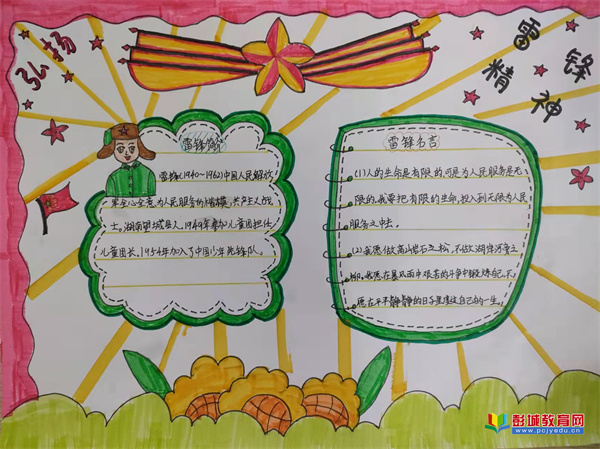 弘扬
雷锋精神
雷锋简介
雷锋(1940-1962)中国人民解放
军全心全意为人民服务的楷模,共产主义战
士。湖南望城县人,1949年参加儿童团担任
儿童团长,1954年加入了中国少年先锋队。
雷锋名言
(1)人的生命是有限的,可是为人民服务是无
限的,我要把有限的生命,投入到无限为人民
服务之中去。
(2)我愿做高山岩石之松,不做湖岸河旁之
柳。我愿在暴风雨中艰苦的斗争中锻炼自己,不
愿在平平静静的日子里度过自己的一生。
彭城教育网
www.pcjyedu.cn